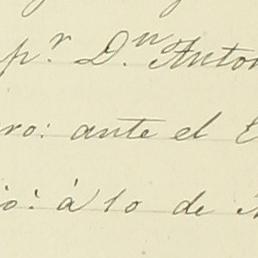 pr. Dn. Anton
ro: ante el E
io: á 10 de